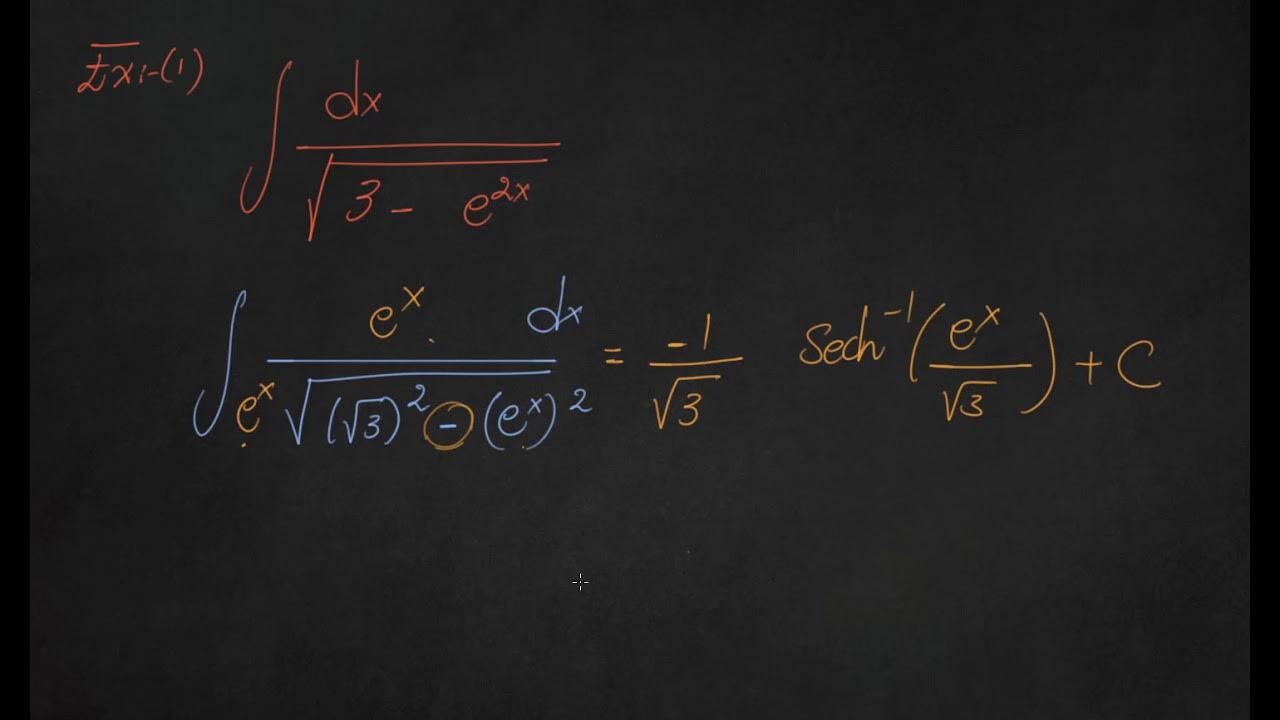 Ex:-(1) ∫ dx / √(3 - e^(2x))
∫ e^x · dx / (e^x √((√3)^2 - (e^x)^2)) = -1/√3 Sech^(-1)(e^x/√3) + C